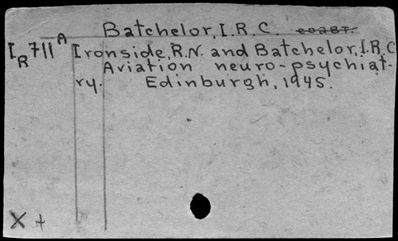 Batchelor, I.R.C. coaut.
IR711A Ironside, R.N. and Batchelor, I.R.C
Aviation neuro-psychiat-
ry. Edinburgh, 1945.
X +